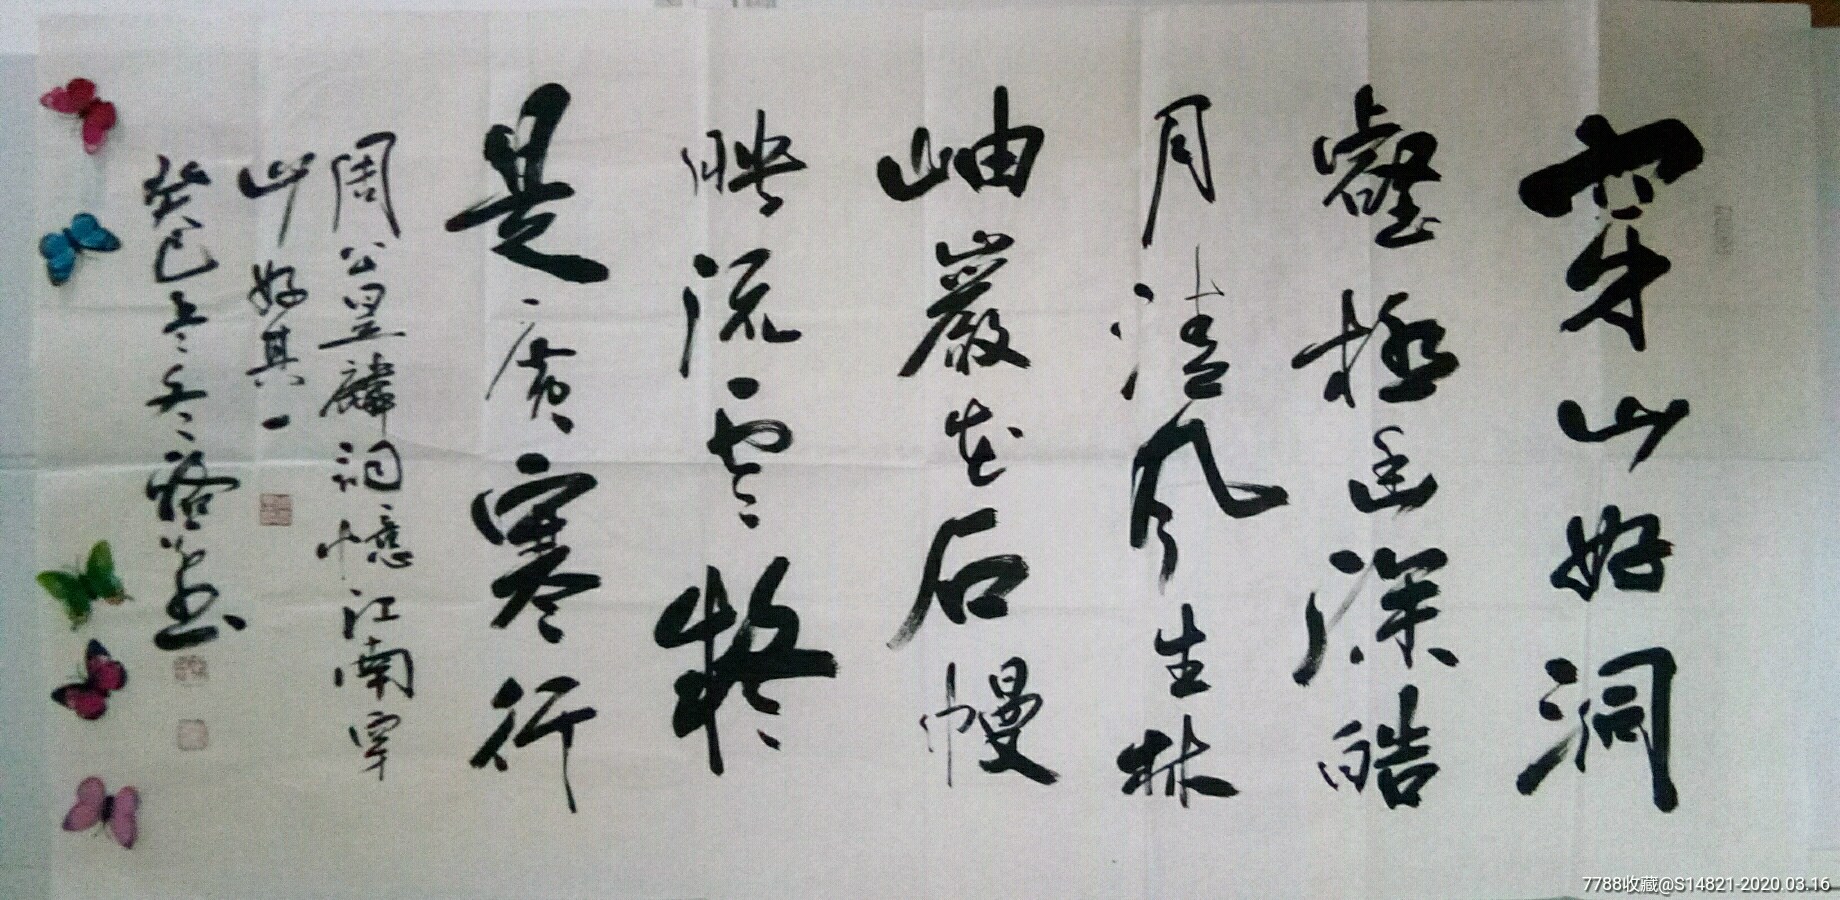 穿山好洞
壑極逶深皓
月清風生林
岫巖花石幔
映流雲擬
是廣寒行
周公皇麟詞憶江南穿
山好其一
癸巳冬
7788收藏@S14821-2020.03.16